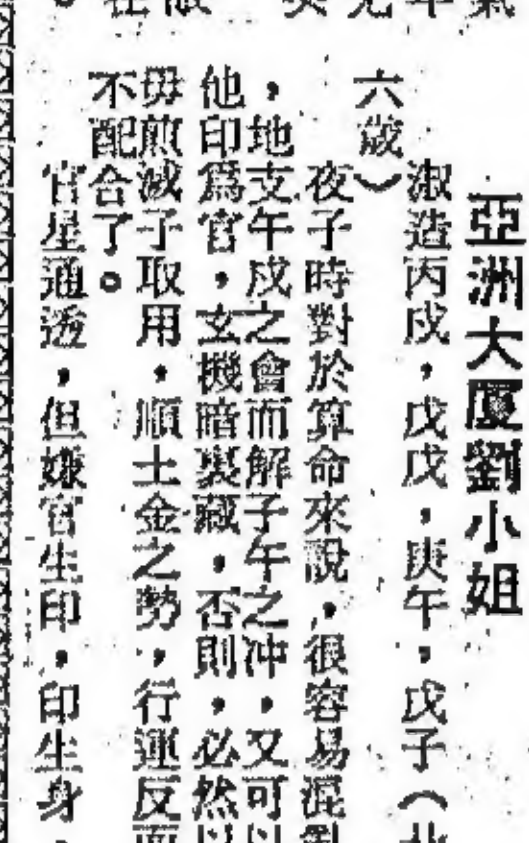 亞洲大厦劉小姐
淑造丙戌，戊戌，庚午，戊子（
六歲）
夜子時對於算命來說，很容易混
，地支午戌之會而解子午之冲，又可以
他印爲官，玄機暗裏藏，否則，必然以
毋煎滅子取用，順土金之勢，行運反而
不配合了。
官星通透，但嫌官生印，印生身，